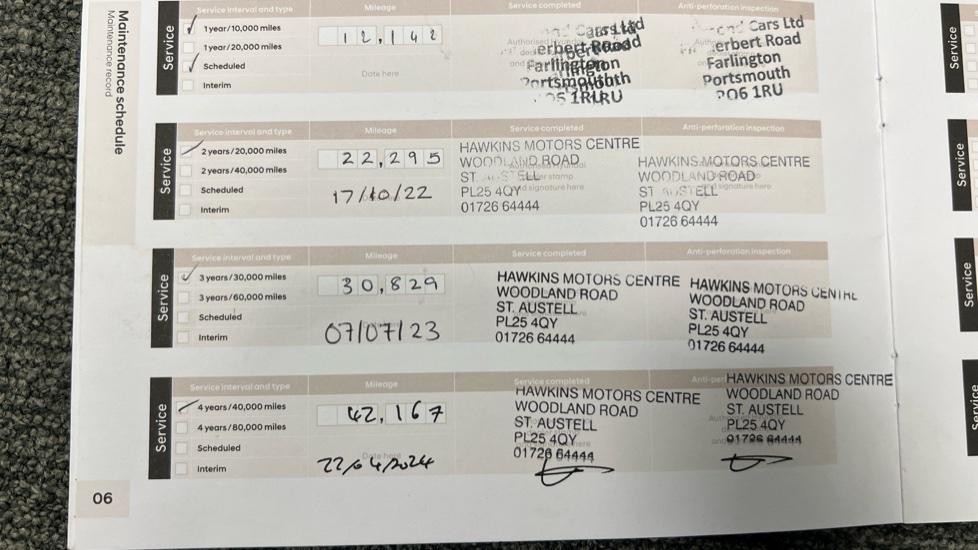 Maintenance schedule
Maintenance record
Service
Service interval and type Mileage Service completed Anti-perforation inspection
1 year/10,000 miles
1 year/20,000 miles
Scheduled
Interim
12,142
Date here
Cars Ltd
Road
Farlington
Portsmouth
1RU
Cars Ltd
erbert Road
Farlington
Portsmouth
PO6 1RU
Service
Service interval and type Mileage Service completed Anti-perforation inspection
2 years/20,000 miles
2 years/40,000 miles
Scheduled
Interim
22,295
17/10/22
HAWKINS MOTORS CENTRE
WOODLAND ROAD
ST. AUSTELL
PL25 4QY
01726 64444
HAWKINS MOTORS CENTRE
WOODLAND ROAD
ST AUSTELL
PL25 4QY
01726 64444
Service
Service interval and type Mileage Service completed Anti-perforation inspection
3 years/30,000 miles
3 years/60,000 miles
Scheduled
Interim
30,829
07/07/23
HAWKINS MOTORS CENTRE
WOODLAND ROAD
ST. AUSTELL
PL25 4QY
01726 64444
HAWKINS MOTORS CENTRE
WOODLAND ROAD
ST. AUSTELL
PL25 4QY
01726 64444
Service
Service interval and type Mileage Service completed
4 years/40,000 miles
4 years/80,000 miles
Scheduled
Interim
42,167
Date here
22/04/2024
HAWKINS MOTORS CENTRE
WOODLAND ROAD
ST. AUSTELL
PL25 4QY
01726 64444
HAWKINS MOTORS CENTRE
WOODLAND ROAD
ST. AUSTELL
PL25 4QY
01726 64444
06
Service
Service
Service
Service